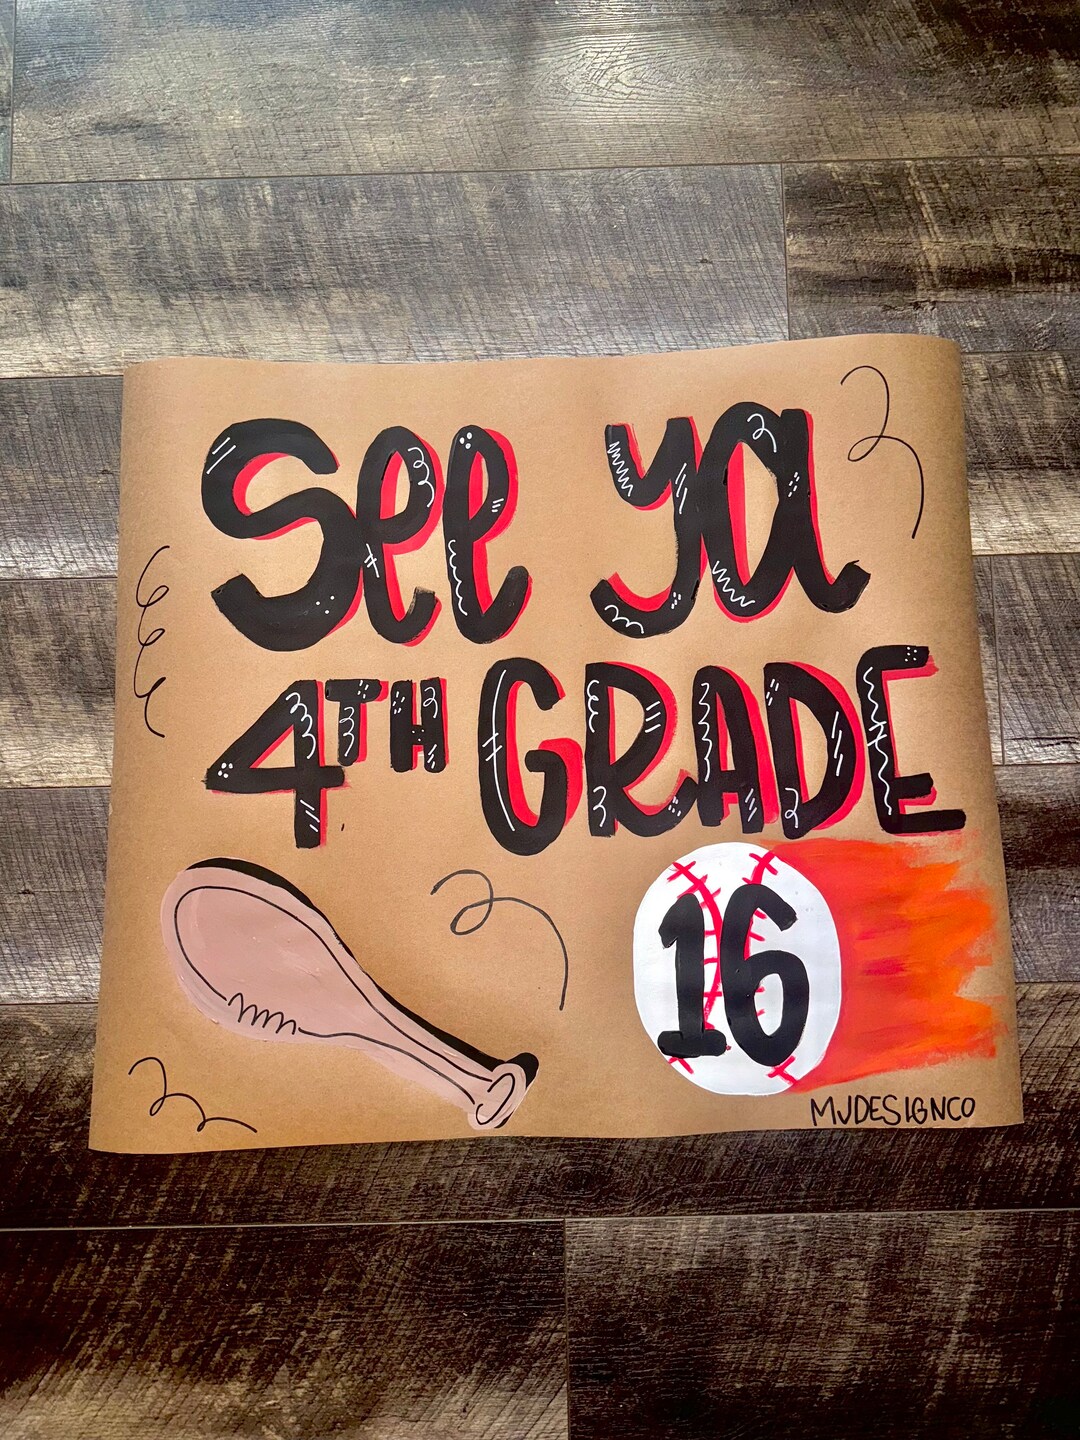 See ya
4TH GRADE
16
MJDESIGNCO